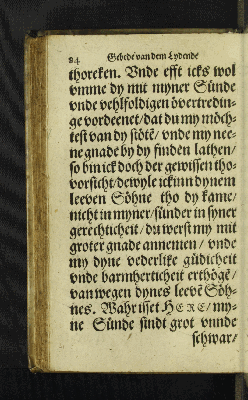 84 Gebede van dem Lydende
thoreken. Vnde efft icks wol
vmme dy mit myner Sünde
vnde vehlfoldigen övertredin-
ge vordeenet/dat du my möch-
test van dy stöte/vnde my nee-
ne gnade by dy finden lathen/
so bin ick doch der gewissen tho-
vorsicht/dewyle ick inn dynem
leeven Söhne tho dy kame/
nicht in myner/sünder in syner
gerechticheit/du werst my mit
groter gnade annemen/vnde
my dyne vederlike güdicheit
vnde barmherticheit erthögē/
van wegen dynes leevē Söh-
nes. Wahr isset HERE/my-
ne Sünde sindt grot vnnde
schwar/